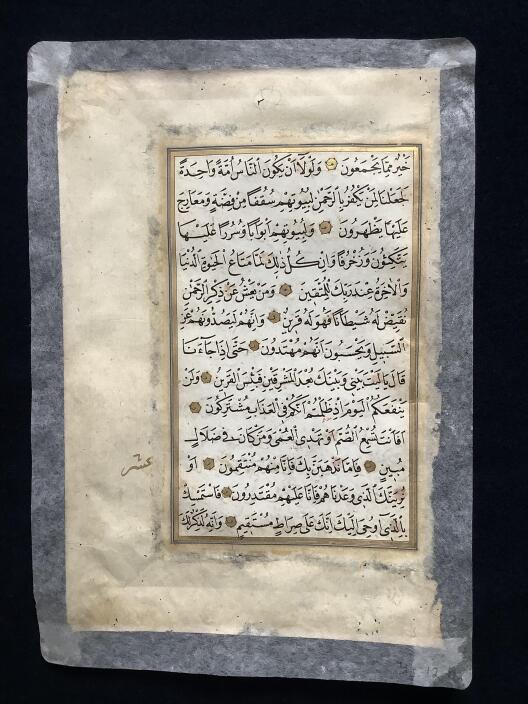 ٢
خَيْرٌ مِمَّا يَجْمَعُونَ وَلَوْلَا اَنْ يَكُونَ النَّاسُ اُمَّةً وَاحِدَةً
لَجَعَلْنَا لِمَنْ يَكْفُرُ بِالرَّحْمٰنِ لِبُيُوتِهِمْ سُقُفًا مِنْ فِضَّةٍ وَمَعَارِجَ
عَلَيْهَا يَظْهَرُونَ وَلِبُيُوتِهِمْ اَبْوَابًا وَسُرُرًا عَلَيْهَا
يَتَّكِؤُنَ وَزُخْرُفًا وَاِنْ كُلُّ ذٰلِكَ لَمَّا مَتَاعُ الْحَيٰوةِ الدُّنْيَا
وَالْاٰخِرَةُ عِنْدَ رَبِّكَ لِلْمُتَّقِينَ وَمَنْ يَعْشُ عَنْ ذِكْرِ الرَّحْمٰنِ
نُقَيِّضْ لَهُ شَيْطَانًا فَهُوَ لَهُ قَرِينٌ وَاِنَّهُمْ لَيَصُدُّونَهُمْ عَنِ
السَّبِيلِ وَيَحْسَبُونَ اَنَّهُمْ مُهْتَدُونَ حَتّٰى اِذَا جَاءَنَا
قَالَ يَا لَيْتَ بَيْنِى وَبَيْنَكَ بُعْدَ الْمَشْرِقَيْنِ فَبِئْسَ الْقَرِينُ وَلَنْ
يَنْفَعَكُمُ الْيَوْمَ اِذْ ظَلَمْتُمْ اَنَّكُمْ فِى الْعَذَابِ مُشْتَرِكُونَ
اَفَاَنْتَ تُسْمِعُ الصُّمَّ اَوْ تَهْدِى الْعُمْىَ وَمَنْ كَانَ فِى ضَلَالٍ
مُبِينٍ فَاِمَّا نَذْهَبَنَّ بِكَ فَاِنَّا مِنْهُمْ مُنْتَقِمُونَ اَوْ
نُرِيَنَّكَ الَّذِى وَعَدْنَاهُمْ فَاِنَّا عَلَيْهِمْ مُقْتَدِرُونَ فَاسْتَمْسِكْ
بِالَّذِى اُوحِىَ اِلَيْكَ اِنَّكَ عَلٰى صِرَاطٍ مُسْتَقِيمٍ وَاِنَّهُ لَذِكْرٌ لَكَ
عشر